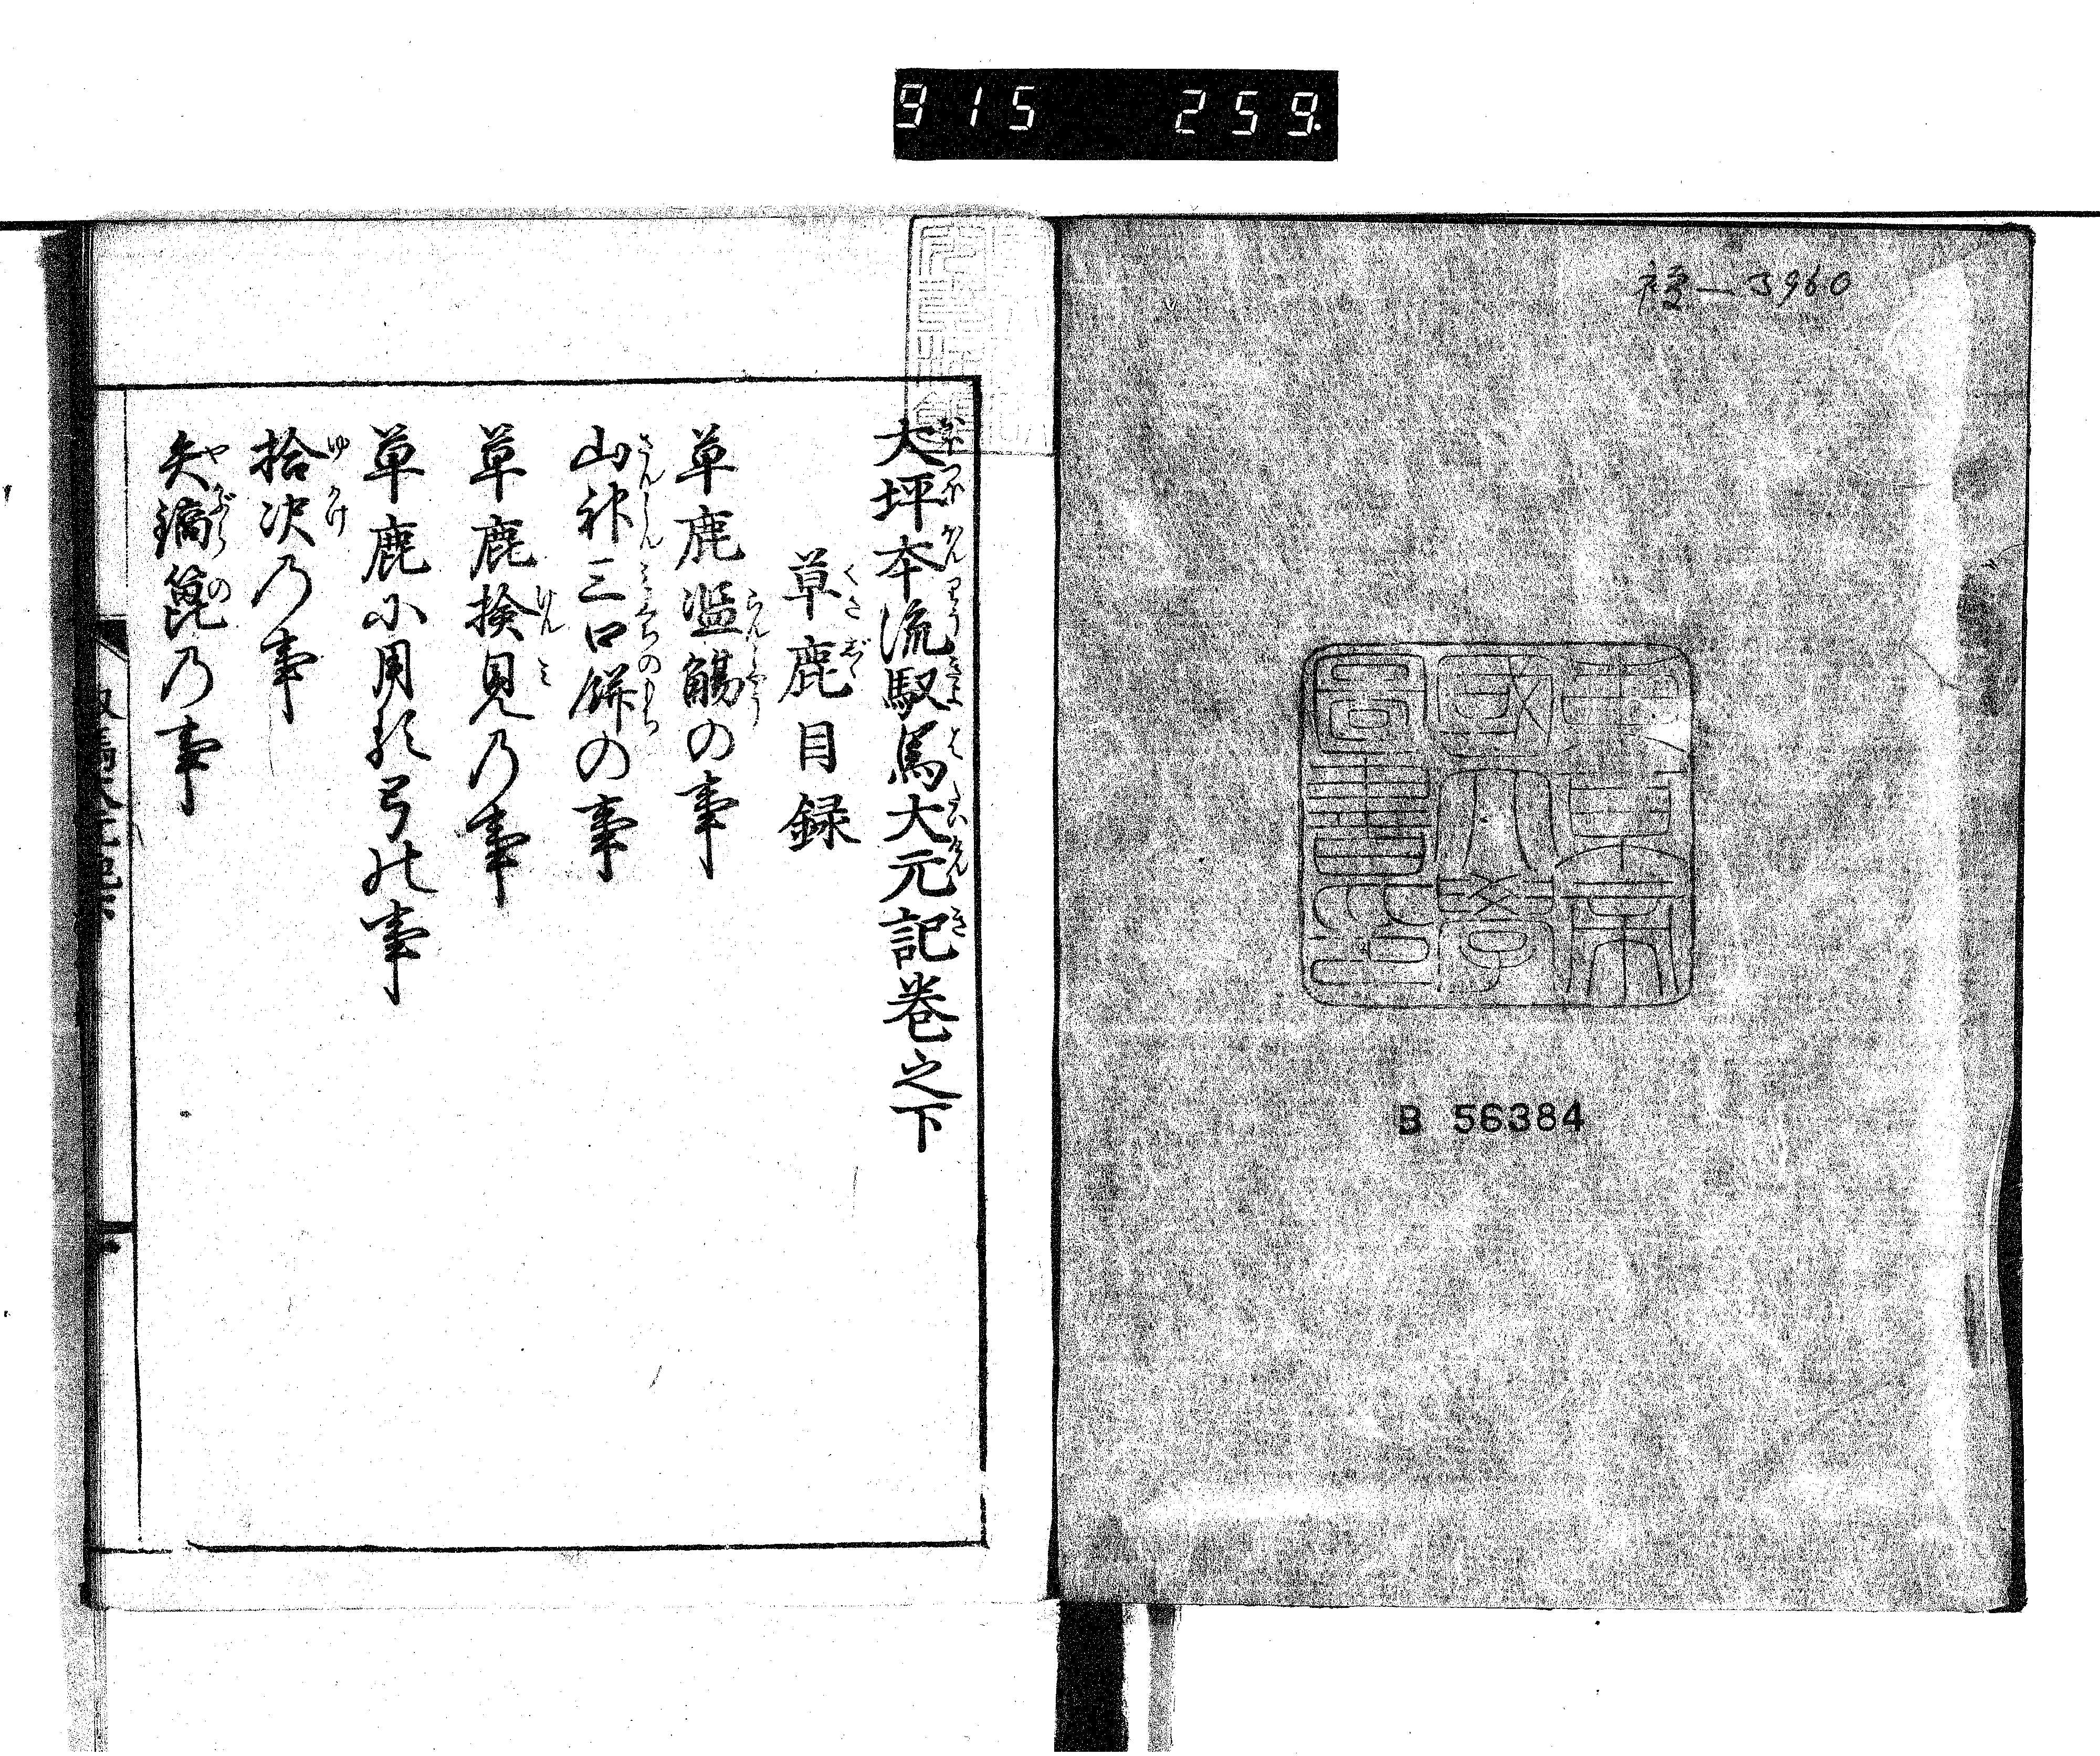 915 259.
禮一3960
東京帝國大學圖書印
B 56384
大坪本流馭馬大元記巻之下
草鹿目録
草鹿濫觴の事
山神三口餅の事
草鹿検見乃事
草鹿小用弓此事
拾决乃事
矢鏑箆乃事